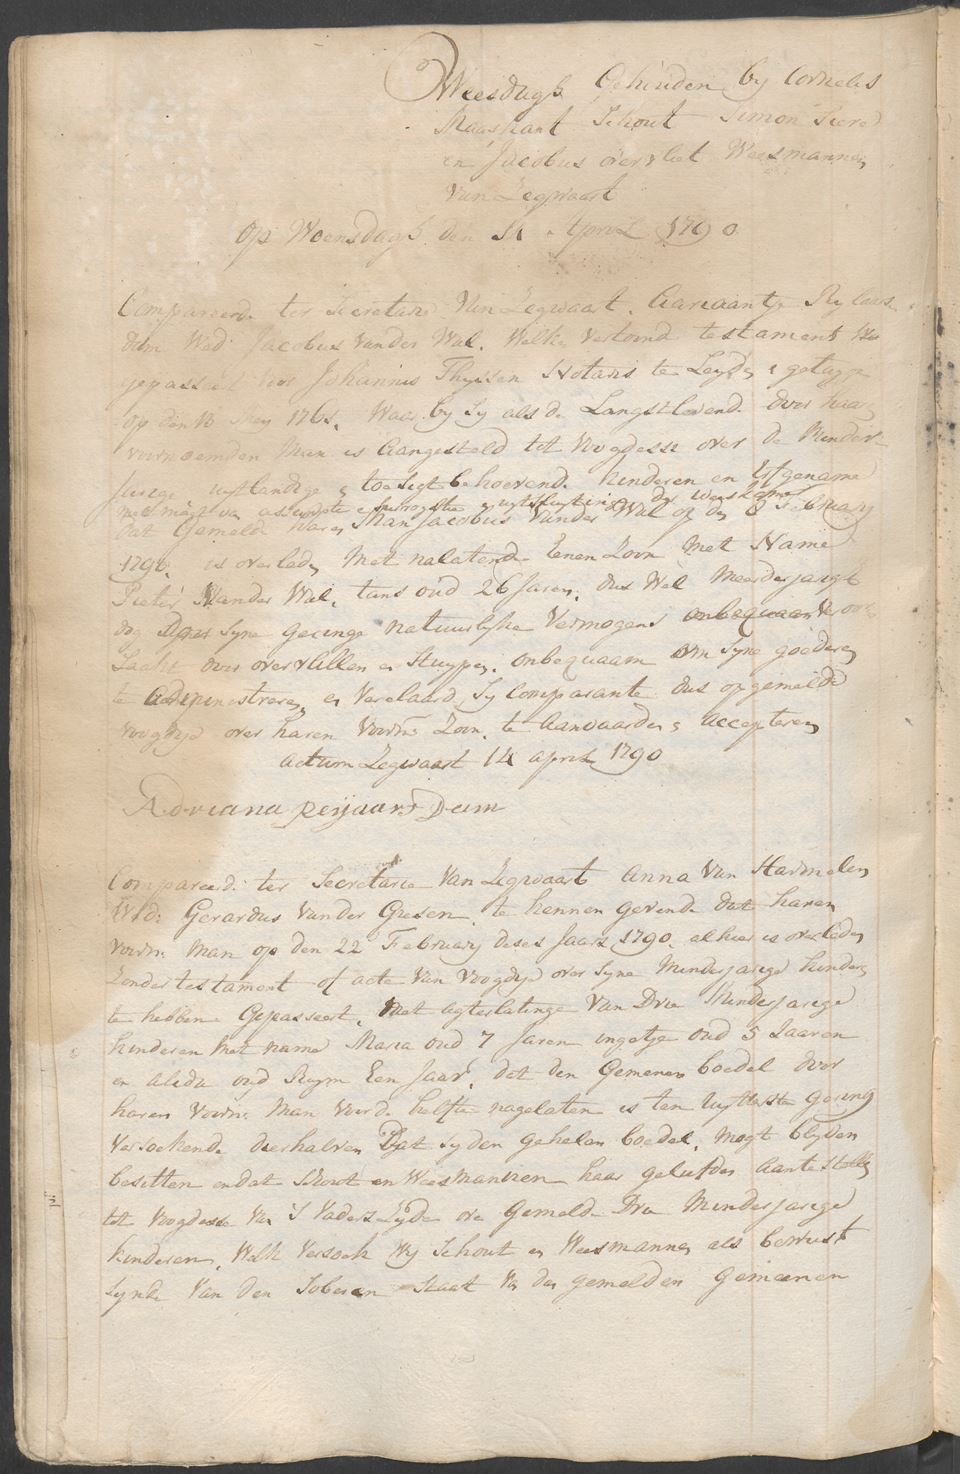 Weesdagh Gehouden by Cornelis
Maaskant Schout Simon
en Jacobus overvliet Weesmannen
Van Zegwaart
op Woensdagh den 14 April 1790
Compareerde ter Secretarie Van Zegwaart.
dam Wed. Jacobus Vander Wal. Welke Vertoond testament
gepasseert voor Johannes Thyssen Notaris te Leyden & getuyge
op den 13 Mey 1765. Waar by Sy als de Langstlevende door haar
voornoemden Man is Aangesteld tot voogdesse over de Minder
jarige, uytlandige & toesigt behoevende kinderen en Erfgename
met magt van & surrogatie & uytsluytinge der weeskamer
dat Gemeld haren Man Jacobus Vander Wal op den 8 February
1790. is overleden Met nalatende Eenen Zoon Met Name
Pieter Vander Wal, tans oud 26 Jaren, dus Wel Meerderjarigh
dog Door Syne geringe natuurlyke Vermogens onbequaam
en Stuypen. onbequaam om Syne goederen
te administreren en Verclaard Sy Comparante dus opgemelde
voogdye over haren voorn. Zoon te Aanvaarden & accepteren
actum Zegwaart 14 april 1790
Adriana Reijaars Dam
Compareerde ter Secretarie Van Zegwaart Anna Van Harmelen
Wed. Gerardus Vander Giesen te kennen gevende dat haren
voorn. Man op den 22 February deses Jaars 1790. alhier is overleden
Zonder testament of acte Van Voogdye over Syne Minderjarige kinderen
te hebben Gepasseert, Met agterlatinge Van Drie Minderjarige
kinderen Met name Maria oud 7 Jaren ingetje oud 5 Jaaren
en alida oud Ruym Een Jaar, dat den Gemenen boedel door
haren voorn. Man voor de helfte nagelaten is ten Uytterste gering
Versoekende derhalven Dat Sy den gehelen boedel. mogt blyven
besitten en dat Schout en Weesmannen haar geliefden aan te stellen
tot voogdesse Van 'S Vaders Zyde over Gemelde Drie Minderjarige
kinderen, Welk Versoek Wy Schout en Weesmannen als bewust
Synde Van den Soberen Staat Van den gemelden Gemeenen